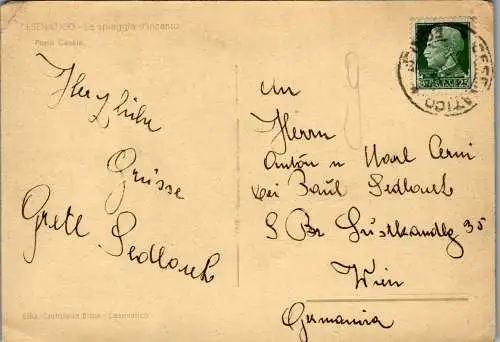 CESENATICO - La spiaggia d'incanto
Porto Canale
Herzliche
Grüsse
Grete Sedlacek
An
Herrn
Anton u Karl Cerni
bei Paul Sedlacek
Lustkandlg 35
Wien
Germania
CESENATICO